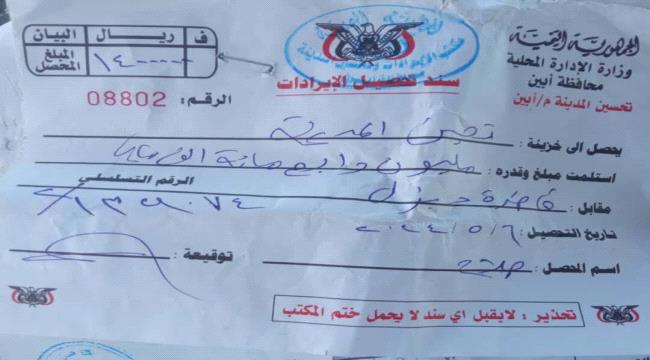 الجمهورية اليمنية
وزارة الإدارة المحلية
محافظة أبين
تحسين المدينة م/أبين
سند تحصيل الإيرادات
ف ريال البيان
المبلغ المحصل
الرقم: 08802
يحصل الى خزينة : تحسين المدينة
استلمت مبلغ وقدره : مليون وأربع مائة الف ريال
مقابل : قاطرة ديزل الرقم التسلسلي
تاريخ التحصيل : ٢٠٢٤/٥/٦
اسم المحصل : توقيعة :
تحذير : لايقبل اي سند لا يحمل ختم المكتب